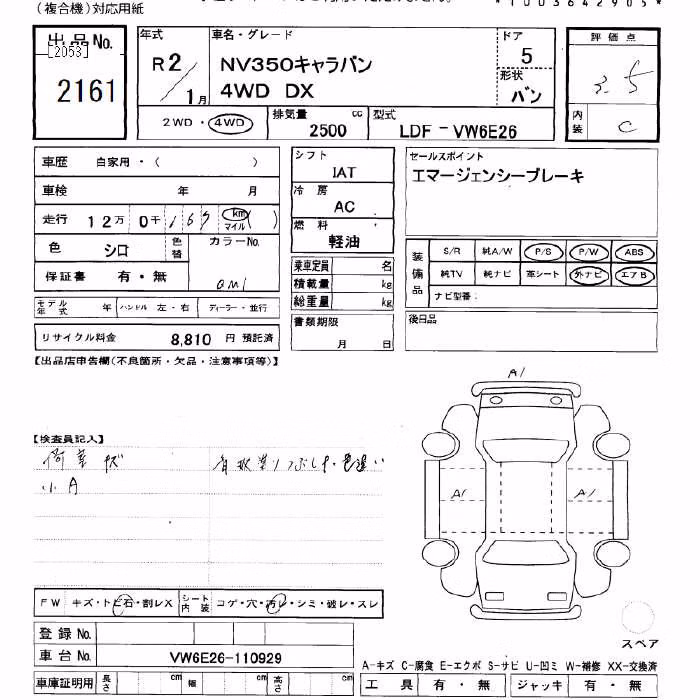 (複合機)対応用紙
*1003642905*
出品No.
[2053]
2161
年式
R2/1月
車名・グレード
NV350キャラバン
4WD DX
ドア
5
形状
バン
評価点
3.5
内装
C
2WD・4WD
排気量 cc
2500
型式
LDF-VW6E26
車歴 自家用・( )
車検 年 月
走行 12万 0千 169 km マイル ( )
色 シロ 色替
カラーNo.
QM1
保証書 有・無
モデル年式 年 ハンドル 左・右 ディーラー・並行
リサイクル料金 8,810 円 預託済
シフト
IAT
冷房
AC
燃料
軽油
乗車定員 名
積載量 kg
総重量 kg
書類期限
月 日
セールスポイント
エマージェンシーブレーキ
装備品
S/R 純A/W P/S P/W ABS
純TV 純ナビ 革シート 外ナビ エアB
ナビ型番:
後日品
【出品店申告欄(不良箇所・欠品・注意事項等)】
【検査員記入】
荷室キズ
小A
A1
A1
A1
FW キズ・トビ石・割レX シート内装 コゲ・穴・汚レ・シミ・破レ・スレ
登録No.
車台No. VW6E26-110929
車庫証明用 長さ cm 幅 cm 高さ cm
スペア
A-キズ C-腐食 E-エクボ S-サビ U-凹ミ W-補修 XX-交換済
工具 有・無 ジャッキ 有・無